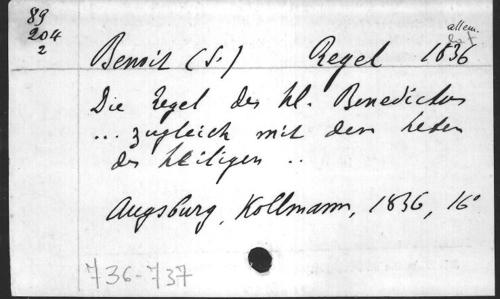 89
204
2
allem.
Benoit (S.) Regel 1836
Die Regel des hl. Benedictus
... zugleich mit dem Leben
des heiligen ..
Augsburg, Kollmann, 1836, 16°
736-737